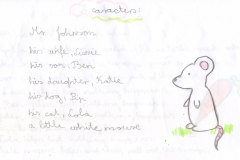 caracters:
Mr Johnson
his wife, Lissie
his son, Ben
his daughter, Katie
his dog, Bip
his cat, Lola
a little white mouse